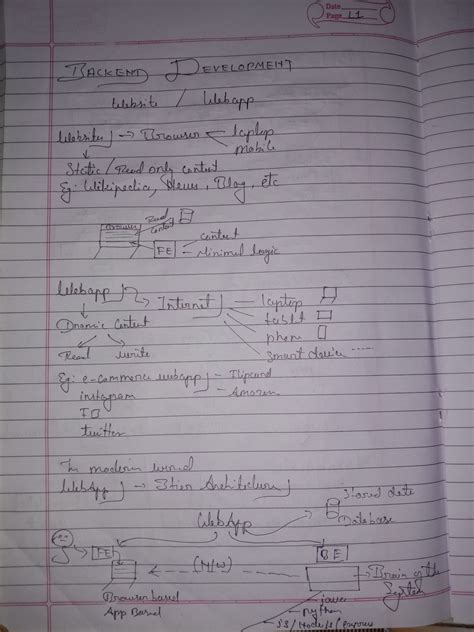 Date
Page L1
BACKEND DEVELOPMENT
Website / Webapp
Website → Browser laptop
mobile
Static / Read only content
Eg: Wikipedia, News, Blog, etc
Read
content
Browser
FE content
Minimal logic
Webapp Internet laptop
tablet
phone
smart device .....
Dnamic Content
Read write
Eg: e-commerce webapp Flipcard
Amazon
instagram
twitter
In modern world
WebApp → 3tier Architecture
Stored data
Database
WebApp
FE (N/W) BE
Brain of the
System
Browser based
App Based
java
Python
JS / NodeJs /